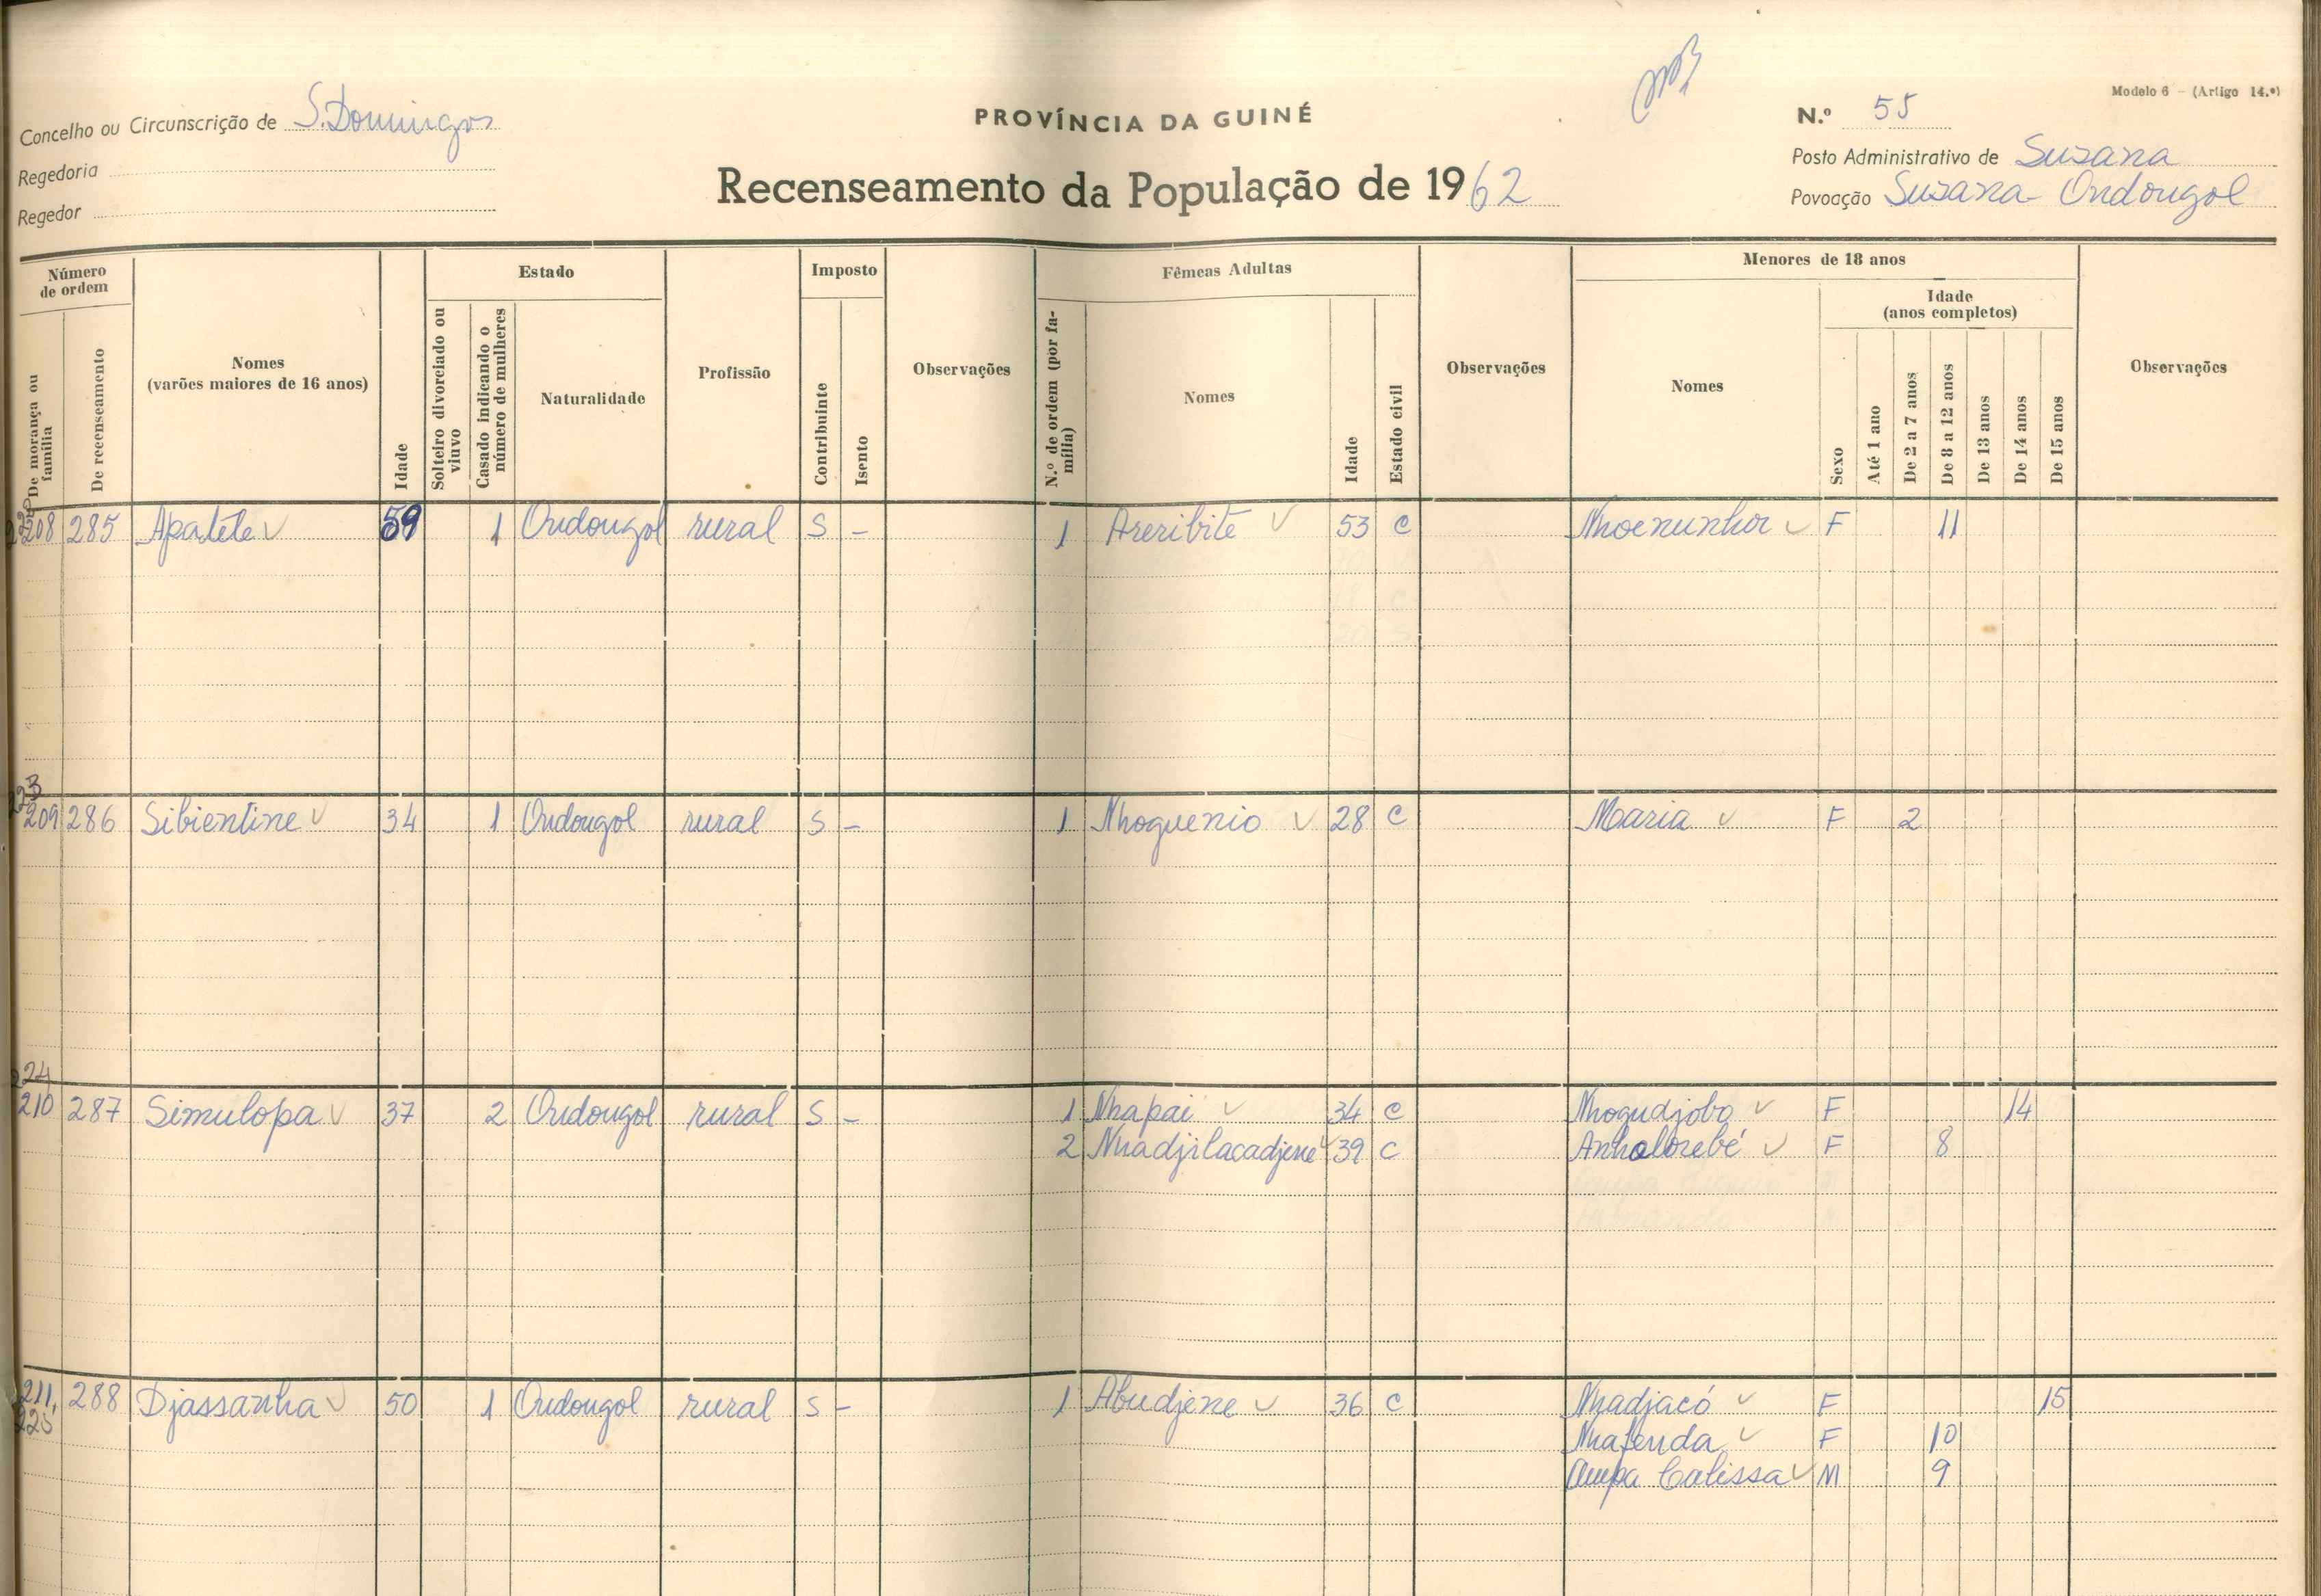 Modelo 6 - (Artigo 14.º)
Concelho ou Circunscrição de S. Domingos
PROVÍNCIA DA GUINÉ
N.º 55
Regedoria
Recenseamento da População de 1962
Posto Administrativo de Suzana
Regedor
Povoação Suzana- Ondougol
Número de ordem
De morança ou família
De recenseamento
Nomes (varões maiores de 16 anos)
Idade
Estado
Solteiro divorciado ou viuvo
Casado indicando o número de mulheres
Naturalidade
Profissão
Imposto
Contribuinte
Isento
Observações
Fêmeas Adultas
N.º de ordem (por família)
Nomes
Idade
Estado civil
Observações
Menores de 18 anos
Nomes
Sexo
Idade (anos completos)
Até 1 ano
De 2 a 7 anos
De 8 a 12 anos
De 13 anos
De 14 anos
De 15 anos
Observações
208 285 Apatête 59 1 Ondougol rural S - 1 Areribite 53 C Nhoenunhor F 11
223
209 286 Sibientine 34 1 Ondougol rural S - 1 Nhoguenio 28 C Maria F 2
224
210 287 Simulopa 37 2 Ondougol rural S - 1 Nhapai 34 C Nhogudjobo F 14
2 Nhadjilacadjene 39 C Anhalorebé F 8
211, 288 Djassanha 50 1 Ondougol rural S - 1 Abudjene 36 C Nhadjacó F 15
225 Nhafenda F 10
Ampa Calissa M 9